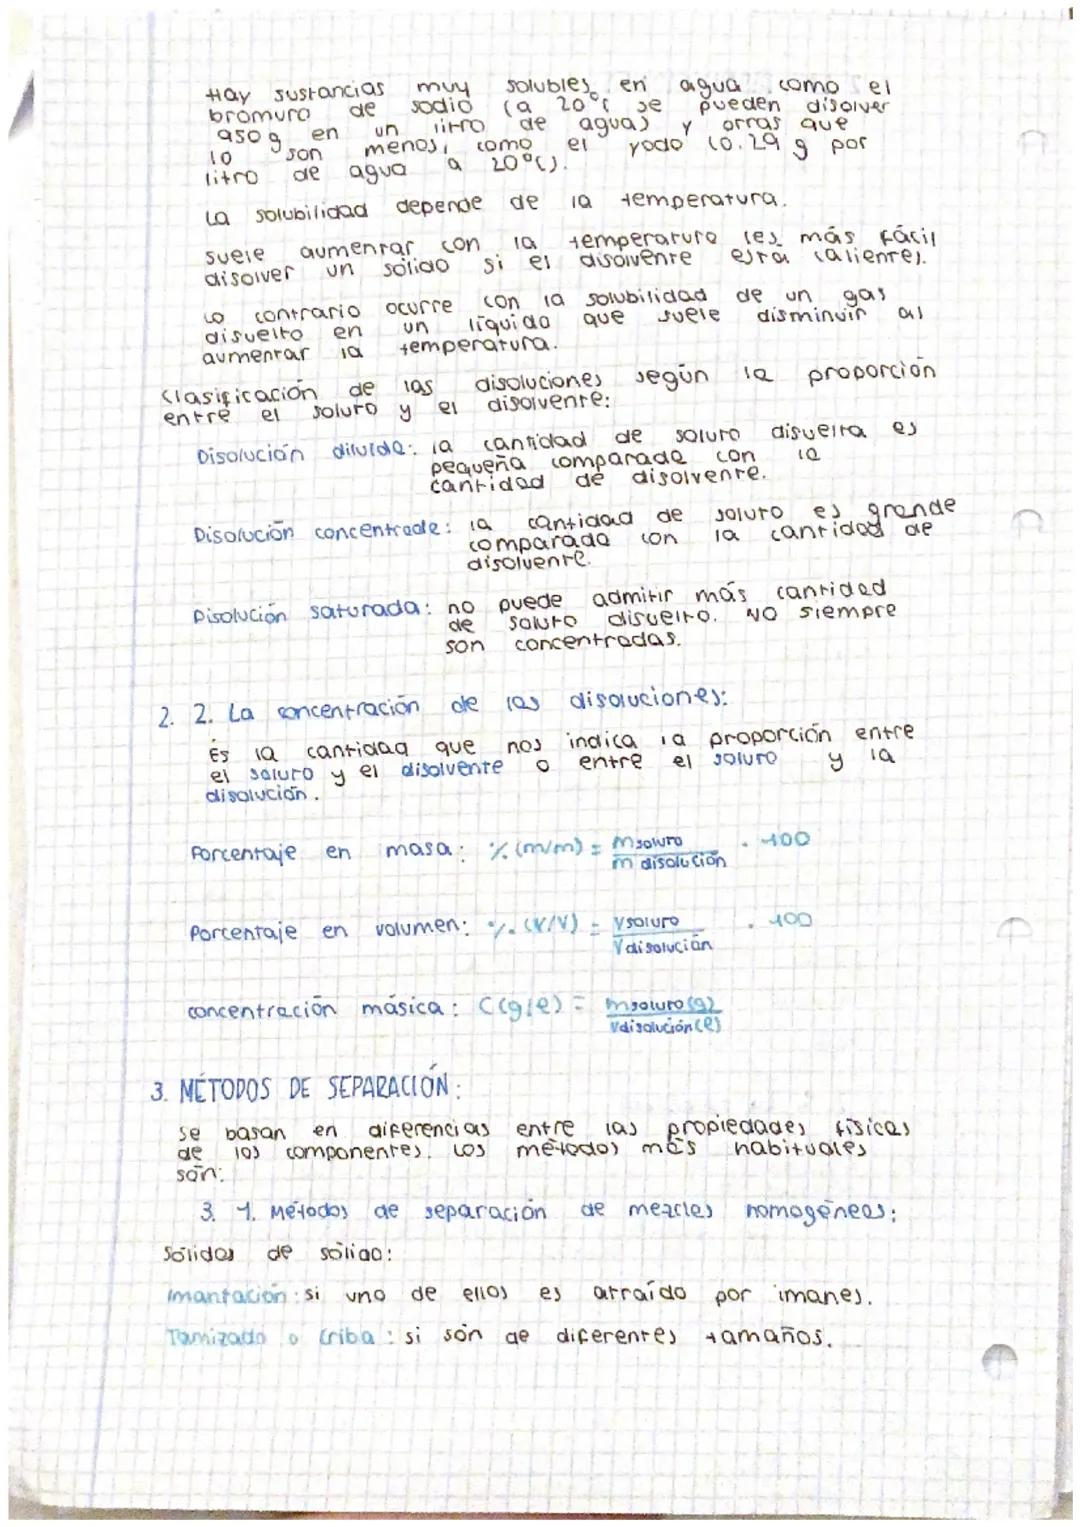 Hay sustancias muy solubles en agua como el
bromuro de sodio (a 20°C se pueden disolver
950g en un litro de agua) y otras que
lo son menos, como el yodo (0.29 g por
litro de agua a 20°C).
La solubilidad depende de la temperatura.
Suele aumentar con la temperatura (es más fácil
disolver un sólido si el disolvente esta caliente).
Lo contrario ocurre con la solubilidad de un gas
disuelto en un líquido que suele disminuir al
aumentar la temperatura.
Clasificación de las disoluciones según la proporción
entre el soluto y el disolvente:
Disolución diluida: la cantidad de soluto disuelta es
pequeña comparada con la
cantidad de disolvente.
Disolución concentrada: la cantidad de soluto es grande
comparada con la cantidad de
disolvente.
Disolución saturada: no puede admitir más cantidad
de soluto disuelto. No siempre
son concentradas.
2. 2. La concentración de las disoluciones:
Es la cantidad que nos indica la proporción entre
el soluto y el disolvente o entre el soluto y la
disolución.
Porcentaje en masa: % (m/m) = m soluto . 100
m disolución
Porcentaje en volumen: % (V/V) = V soluto . 100
V disolución
concentración másica: C(g/l) = m soluto (g)
V disolución (l)
3. MÉTODOS DE SEPARACIÓN:
Se basan en diferencias entre las propiedades físicas
de los componentes. Los métodos más habituales
són:
3. 1. Métodos de separación de mezclas homogéneas:
Sólidos de sólido:
Imantación: si uno de ellos es atraído por imanes.
Tamizado o criba: si són de diferentes tamaños.